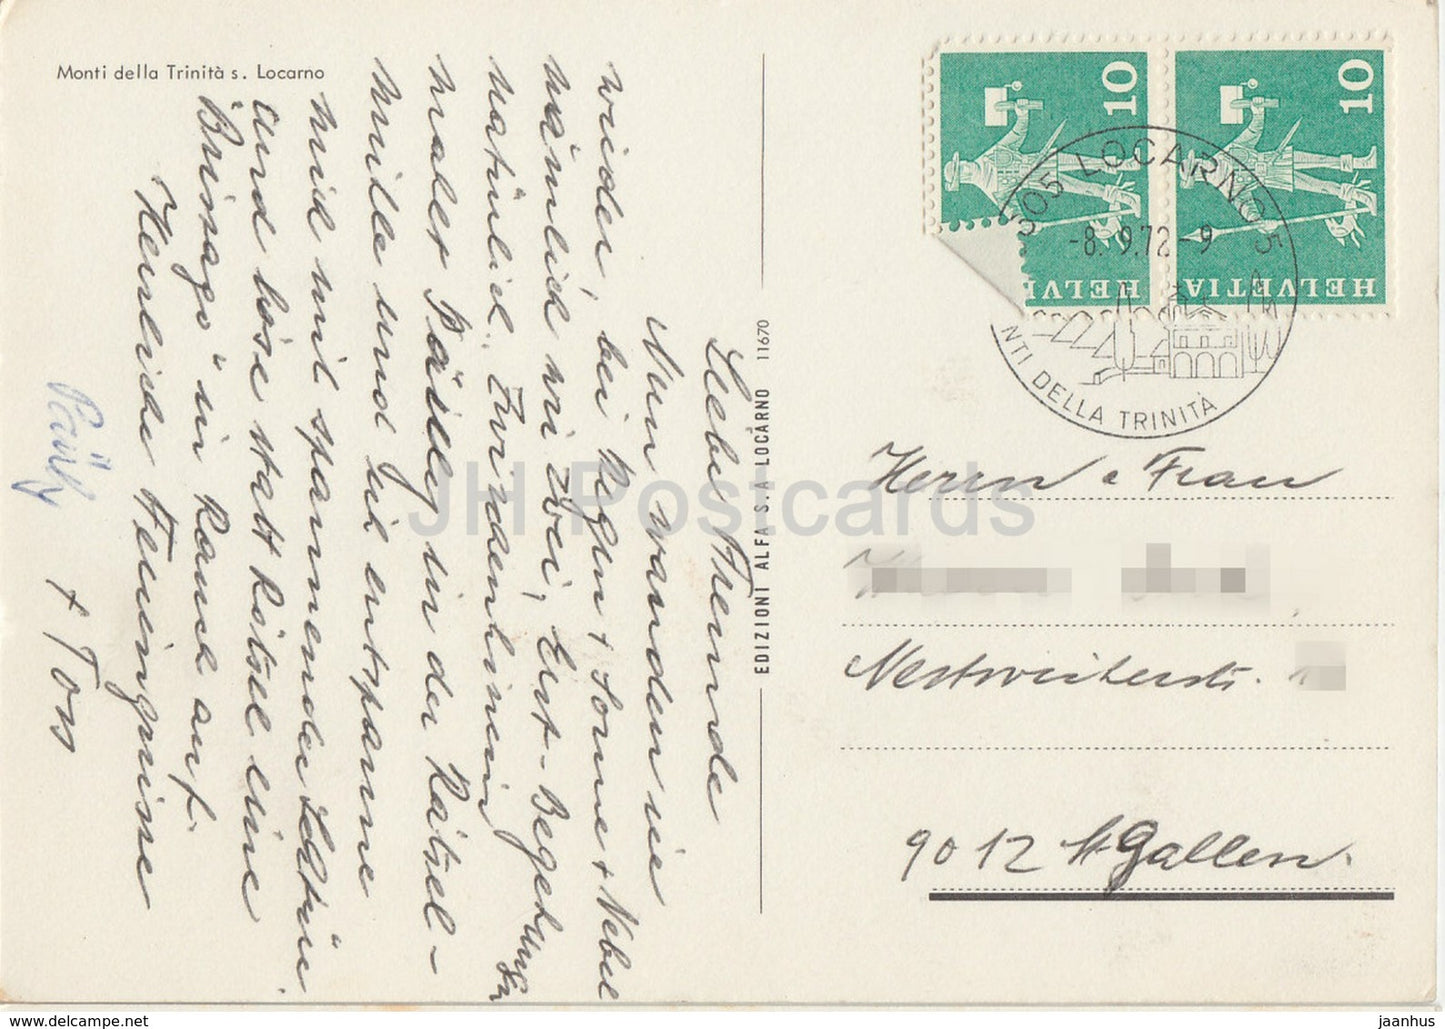 Monti della Trinità s. Locarno
Liebe Freunde
Nun wandern wir
wieder, bei Regen + Sonne + Nebel
nämlich wir zwei, Erst-Begehungen
natürlich. Zwischenhinein
malet Päuley in der Rätsel-
mitte und ich entspanne
mich mit spannender Lektüre
und löse statt Rätsel eine
"Brissago" in Rauch auf.
Herzliche Feriengrüsse
+ Toss
EDIZIONI ALFA S.A LOCARNO 11670
10 HELVETIA
10 HELV
505 LOCARNO 5
-8. 9.72-9
NTI DELLA TRINITÀ
Herrn & Frau
Nestweiherstr.
9012 St Gallen.
JH Postcards
www.delcampe.net
jaanhus